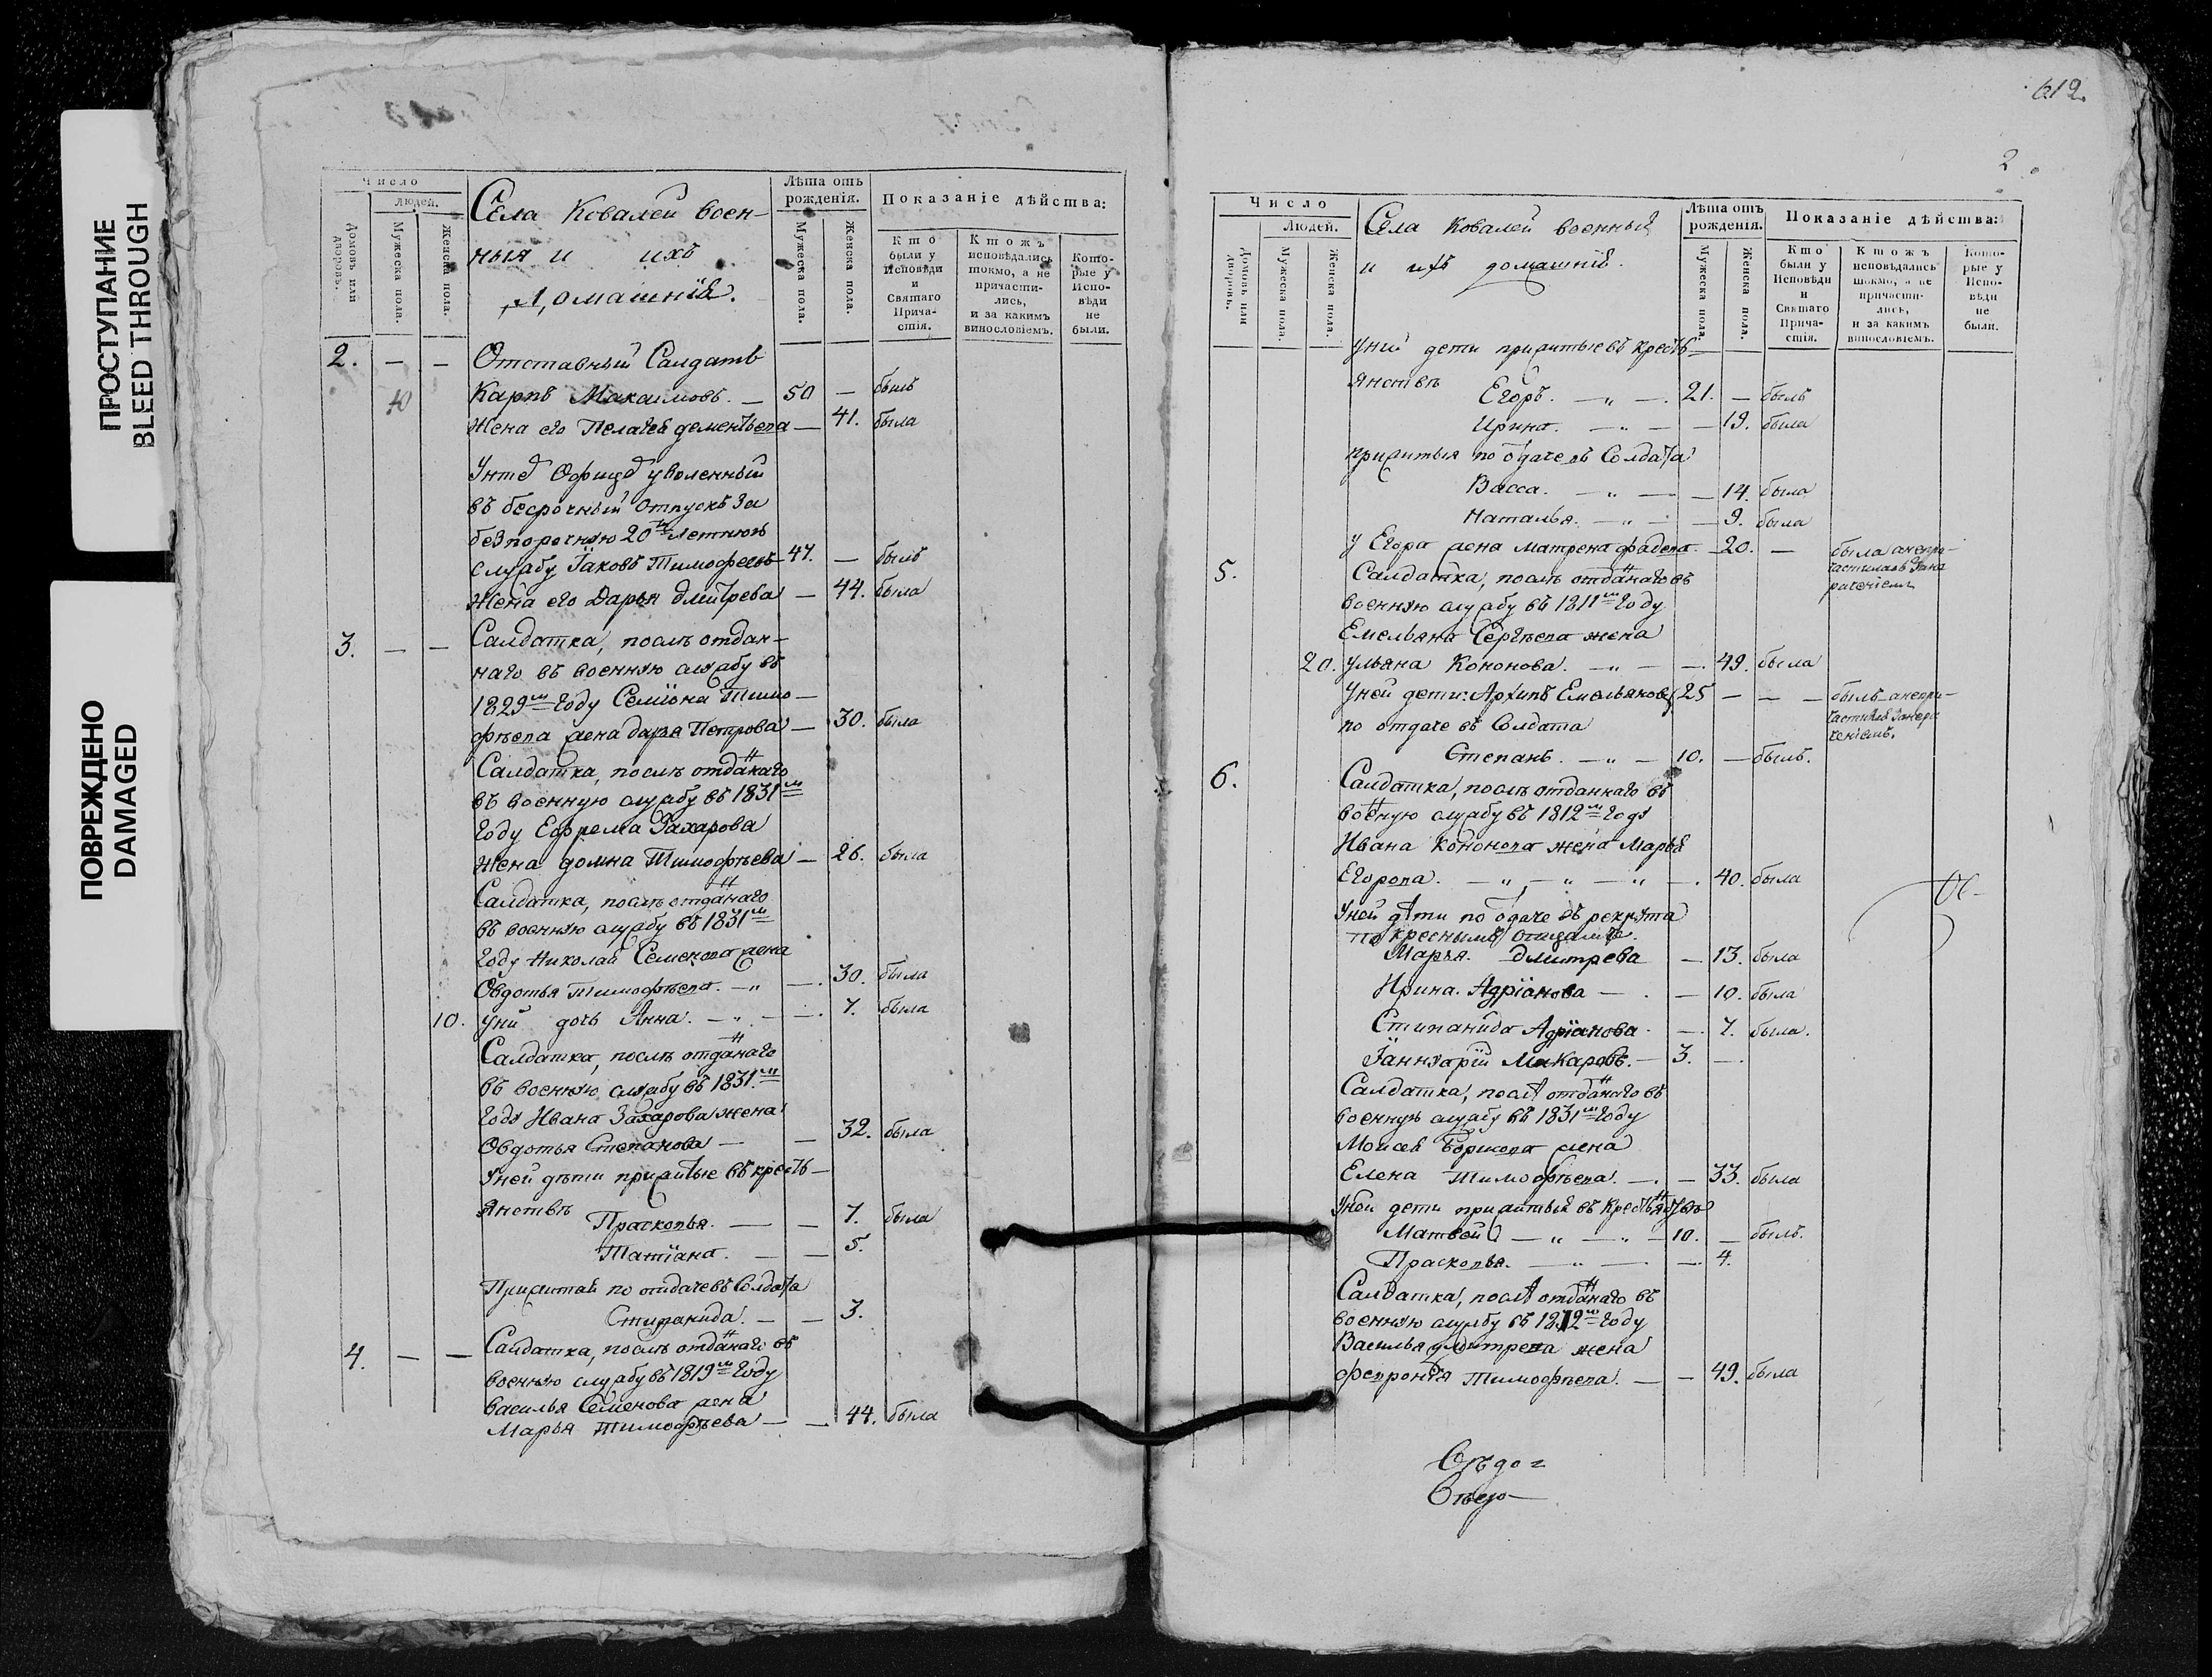 ПРОСТУПАНИЕ
BLEED THROUGH
ПОВРЕЖДЕНО
DAMAGED
Число
людей.
Домовъ или дворовъ.
Мужеска пола.
Женска пола.
Села Ковалей воен-
ныя и ихъ
домашнїя.
Лѣта отъ рождения.
Мужеска пола.
Женска пола.
Показаніе дѣйства:
Кто были у Исповѣди и Святаго Причастія.
Ктожъ исповѣдались токмо, а не причастились, и за какимъ винословіемъ.
Которые у Исповѣди не были.
2. — — Отставный Салдатъ
Карпъ Макаимовъ. — 50 — былъ
Жена его Пелагея дементьева — 41. была
Унтеръ Офицеръ уволенный
въ безсрочный отпускъ за
безпорочную 20 ти летнюю
службу Їаковъ Тимофеевъ 47. — былъ
Жена его Дарья дмитрева — 44. была
3. — — Салдатка, послѣ отдан-
наго въ военную службу въ
1829 м году Семїона Тимо-
фѣева жена дарья Петрова — 30. была
Салдатка, послѣ отданаго
въ военную службу въ 1831 м
году Ефрема Захарова
жена домна Тимофѣева — 26. была
Салдатка, послѣ отданаго
въ военную службу въ 1831 м
году Николай Семенова жена
Овдотья Тимофѣева. — „ — 30. была
10. уней дочь Анна. — „ — 7. была
Салдатка, послѣ отданаго
въ военную службу въ 1831 м
году Ивана Захарова жена
Овдотья Степанова — — 32. была
уней дѣти прижитые въ кресть-
янствѣ
Прасковья. — — 7. была
Татїана. — — 5.
Прижитая по отдаче въ Солдата
Стипанида. — — 3.
4. — — Салдатка, послѣ отданаго въ
военную службу въ 1819 м году
василья Семенова жена
Марья Тимофѣева — — 44. была
612.
2
Число
Людей.
Домовъ или дворовъ.
Мужеска пола.
Женска пола.
Села Ковалей военный
и ихъ домашнїя.
Лѣта отъ рожденія.
Мужеска пола.
Женска пола.
Показаніе дѣйства:
Кто были у Исповѣди и Святаго Причастія.
Ктожъ исповѣдались токмо, а не причастились, и за какимъ винословіемъ.
Которые у Исповѣди не были.
уней дети прижитые въ кресть-
янствѣ
Егоръ. — „ — 21. — былъ
Ирина. — „ — — 19. была
прижитыя по одаче въ Солдата
Васса. — „ — — 14. была
Наталья. — „ — — 9. была
у Егора жена матрена фадева — 20. — была анепри-
частилась
5. Салдатка, послѣ отданаго въ
военную службу въ 1811 м году
Емельяна Сергѣева жена
20. ульяна Кононова. — „ — — 49. была
уней дети: Архипъ Емельяновъ 25 — — — былъ анепри-
частился
по отдаче въ Солдата
Степанъ. — „ — 10. — былъ.
6. Салдатка, послѣ отданнаго въ
военую службу въ 1812 м году
Ивана Кононова жена Марья
Егорова. — „ — „ — „ — 40. была
уней дѣти по одаче въ рекрута
Марья. дмитрева — 13. была
Ирина. Адрїанова — — 10. была
Стипанида Адрїанова — 7. была.
Їаннуарїй Макаровъ. — 3. —
Салдатка, послѣ отданаго въ
военную службу въ 1831 м году
Моисея Борисова жена
Елена Тимофѣева. — — 33. была
уней дети прижитыя въ крестьянствѣ
Матвей — „ — „ — 10. — былъ.
Прасковья. — „ — — 4.
Салдатка, послѣ отданаго въ
военную службу въ 1812 м году
Василья дмитрева жена
февронїя Тимофѣева. — — 49. была